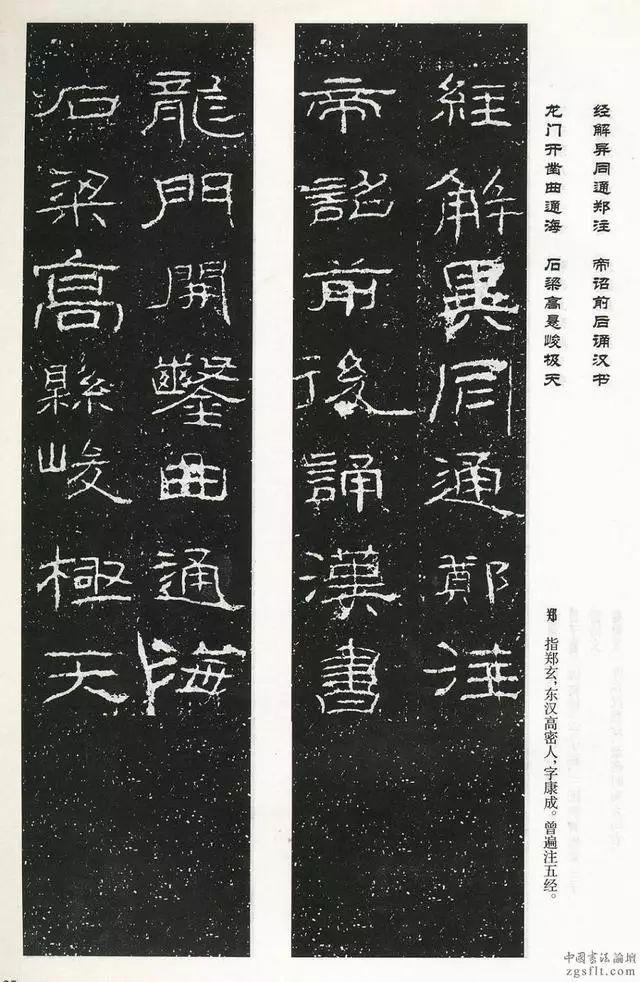 经解异同通郑注　帝诏前后诵汉书
龙门开凿曲通海　石梁高悬峻极天
郑　指郑玄，东汉高密人，字康成。曾遍注五经。
經解異同通鄭注
帝詔前後誦漢書
龍門開鑿曲通海
石梁高縣峻極天
中國書法論壇
zgsflt.com